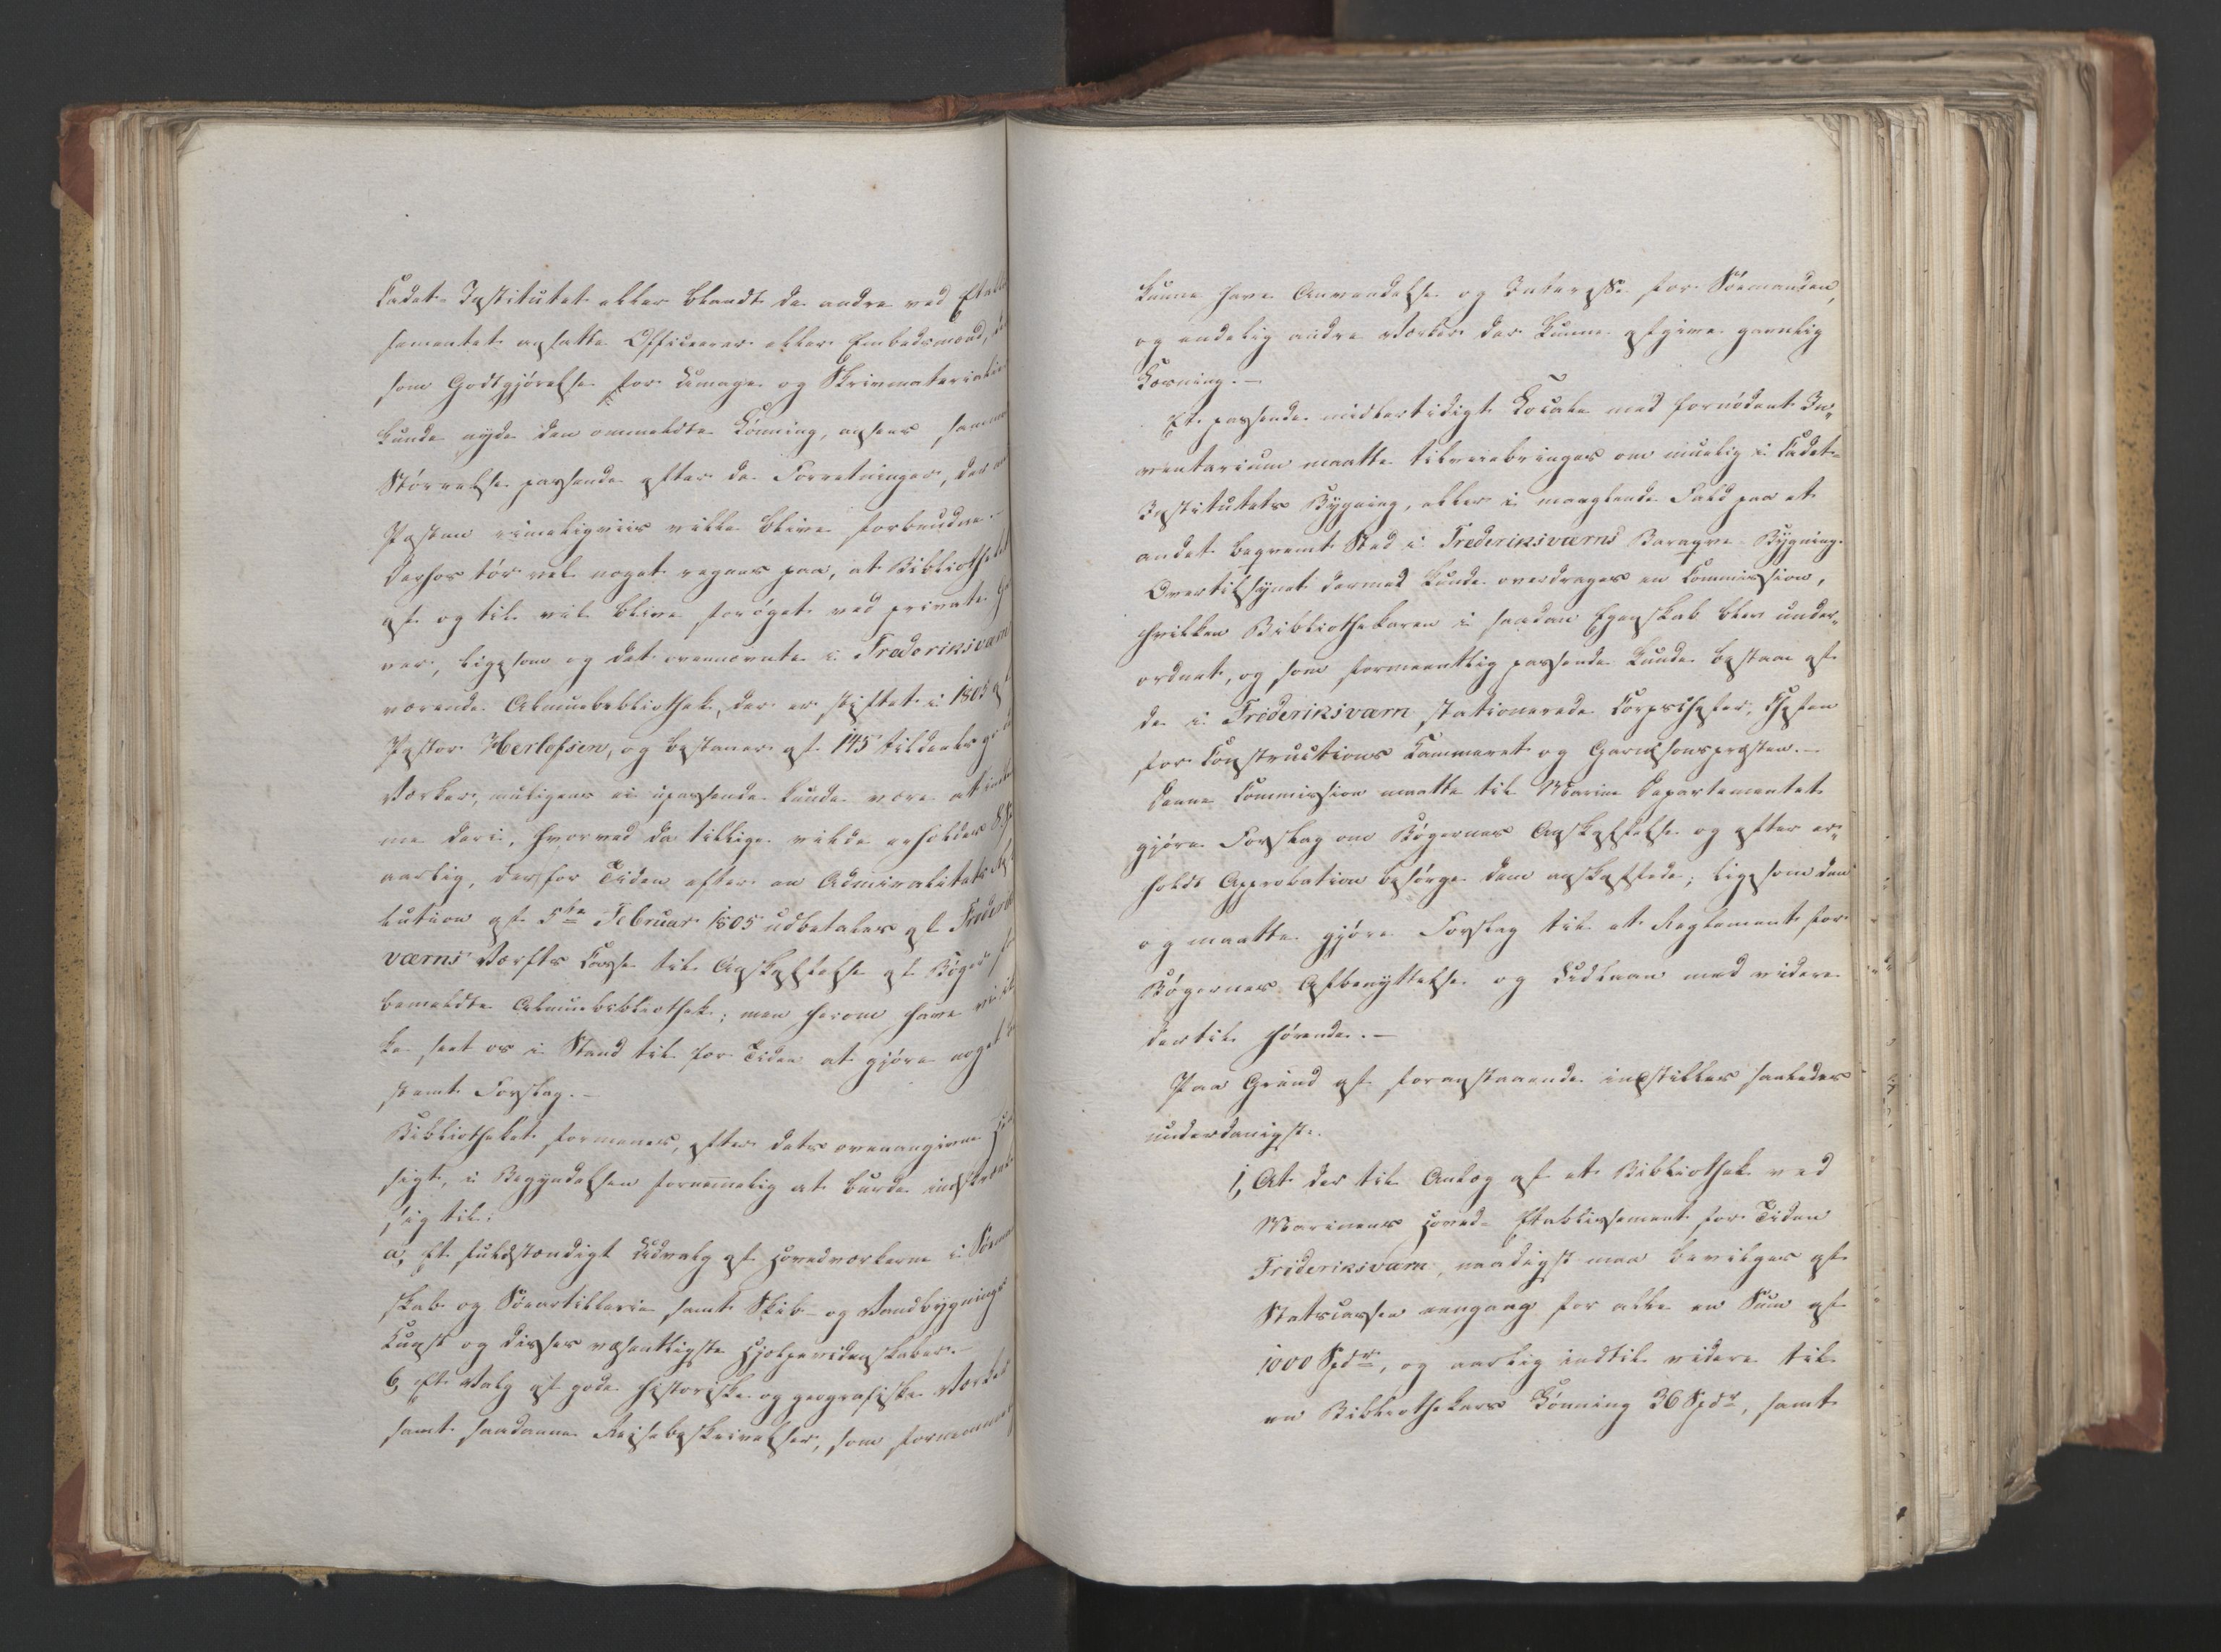 Cadet-Institutet eller blandt de andre ved Etablis
sementet ansatte Officerer eller Embedsmænd, der
som Godtgjörelse for Umage og Skrivmaterialier
kunde nyde den ommeldte Lönning, ansees samme
Störrelse passende efter de Forretninger, der med
Posten rimeligviis ville blive forbundne.-
Derhos tör vel noget regnes paa, at Bibliotheket
af og til vil blive foröget ved private Ga
ver, ligesom og det ovennævnte i Frederiksværn
værende Almuebibliothek, der er stiftet i 1805 af
Pastor Herlofsen, og bestaaer af 145 tildeels gode
Værker, muligens ei upassende kunde være at indlem
me deri, hvorved da tillige vilde erholdes
aarlig, der for Tiden efter en Admiralitets Reso
lution af 5te Februar 1805 udbetales af Frederiks
værns Værfts Casse til Anskaffelse af Böger for
bemeldte Almuebibliothek; men herom have vi ik
ke seet os i Stand til for Tiden at gjöre noget be
stemt Forslag.-
Bibliotheket formenes, efter dets ovenangivne Hen
sigt, i Begyndelsen fornemmelig at burde indskrænke
sig til:
a, Et fuldstændigt Udvalg af Hovedværkerne i Sömand
skab og Söeartillerie samt Skib- og Vandbygnings
Kunst og disses væsentligste Hjelpevidenskaber.-
b, Et Valg af gode historiske og geografiske Værker
samt saadanne Reisebeskrivelser, som fornemmelig
kunne have Anvendelse og Interesse for Söemanden,
og endelig andre Værker der kunne afgive gavnlig
Læsning.-
Et passende midlertidigt Locale med fornödent In„
ventarium maatte tilveiebringes om muelig i Cadet-
Institutets Bygning, eller i manglende Fald paa et
andet beqvemt Sted i Frederiksværns Baraqve-Bygning.
Overtilsynet dermed kunde overdrages en Commission,
hvilken Bibliothekaren i saadan Egenskab blev under„
ordnet, og som formeentlig passende kunde bestaae af
de i Frideriksværn stationerede Corpschefer, Chefen
for Constructions Kammeret og Garnisonspræsten.-
Denne Commission maatte til Marine Departementet
gjöre Forslag om Bögernes Anskaffelse og efter er„
holdt Approbation besörge dem anskaffede; ligesom den
og maatte gjöre Forslag til et Reglement for
Bögernes Afbenyttelse og Udlaan med videre
dertil hörende.-
Paa Grund af foranstaaende indstilles saaledes
underdanigst:
1, At der til Anlæg af et Bibliothek ved
Marinens Hoved-Etablissement for Tiden
Frideriksværn, naadigst maa bevilges af
Statscassen eengang for alle en Sum af
1000 Spdr, og aarlig indtil videre til
en Bibliothekars Lönning 36 Spdr, samt